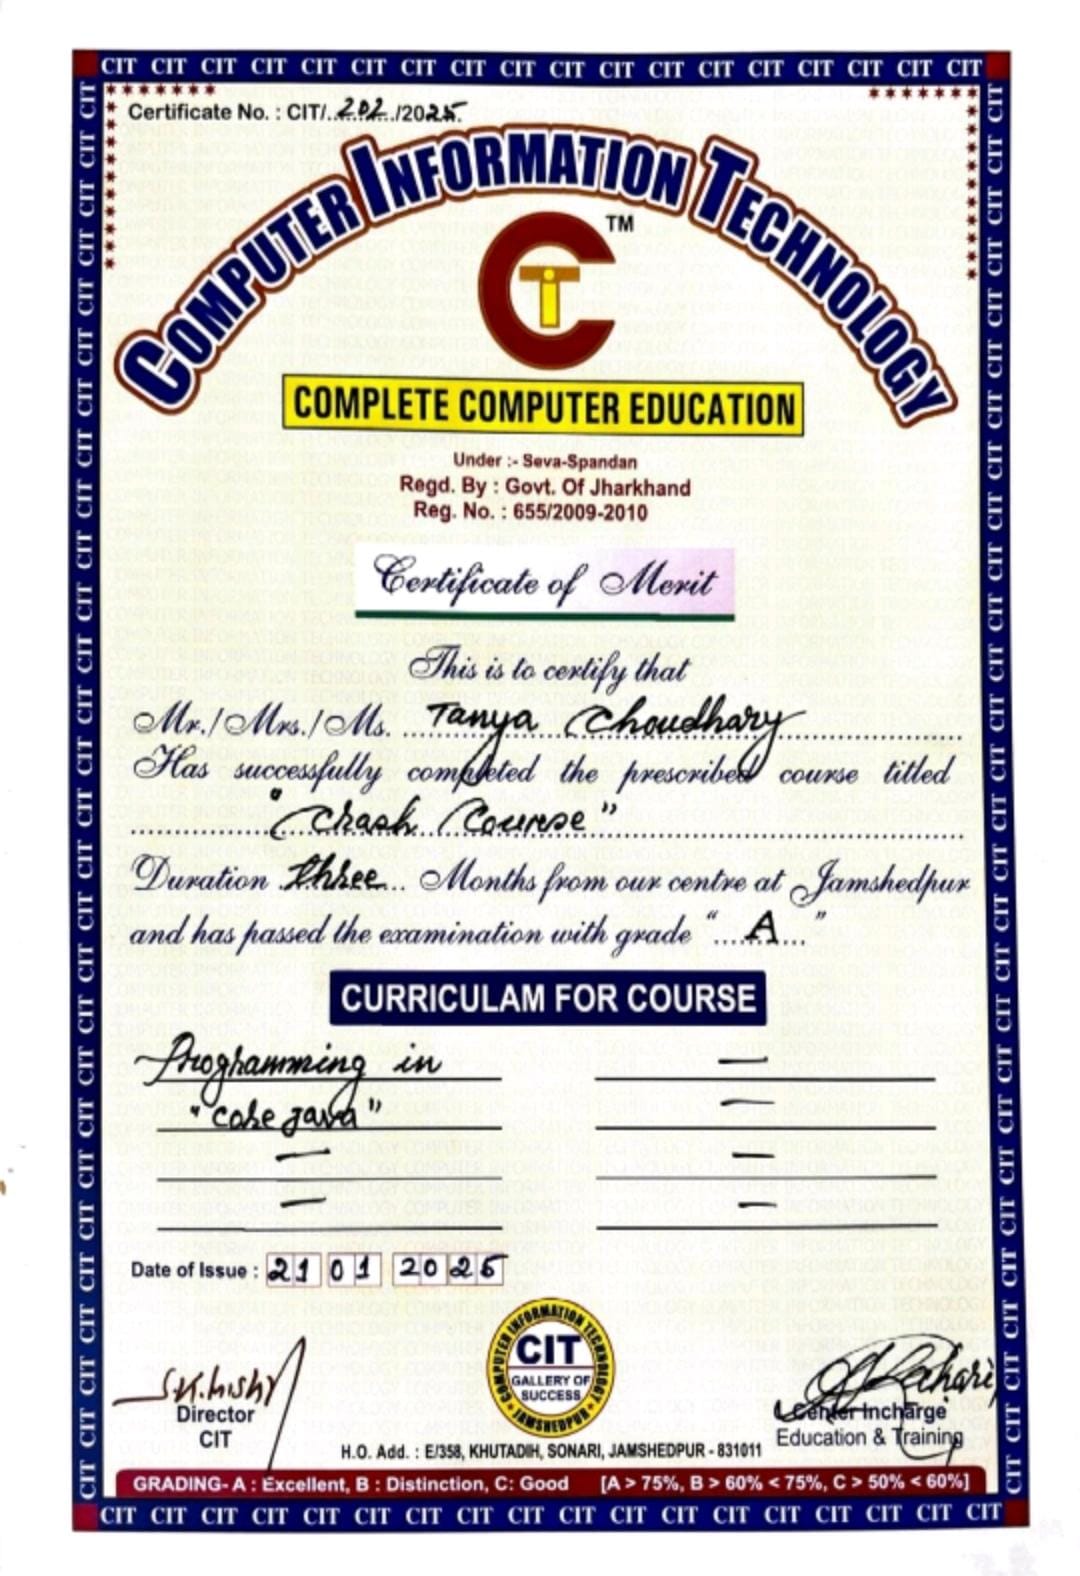 CIT CIT CIT CIT CIT CIT CIT CIT CIT CIT CIT CIT CIT CIT CIT CIT CIT CIT
Certificate No. : CIT/..202../2025.
COMPUTER INFORMATION TECHNOLOGY
TM
CiT
COMPLETE COMPUTER EDUCATION
Under :- Seva-Spandan
Regd. By : Govt. Of Jharkhand
Reg. No. : 655/2009-2010
Certificate of Merit
This is to certify that
Mr./Mrs./Ms. Tanya Choudhary
Has successfully completed the prescribed course titled
"Crash Course"
Duration three... Months from our centre at Jamshedpur
and has passed the examination with grade "....A...."
CURRICULAM FOR COURSE
Programming in
"Core Java"
Date of Issue : 21 01 2025
COMPUTER INFORMATION TECHNOLOGY
CIT
GALLERY OF
SUCCESS
JAMSHEDPUR
Director
CIT
Center Incharge
Education & Training
H.O. Add. : E/358, KHUTADIH, SONARI, JAMSHEDPUR - 831011
GRADING- A : Excellent, B : Distinction, C: Good [A > 75%, B > 60% < 75%, C > 50% < 60%]
CIT CIT CIT CIT CIT CIT CIT CIT CIT CIT CIT CIT CIT CIT CIT CIT CIT CIT